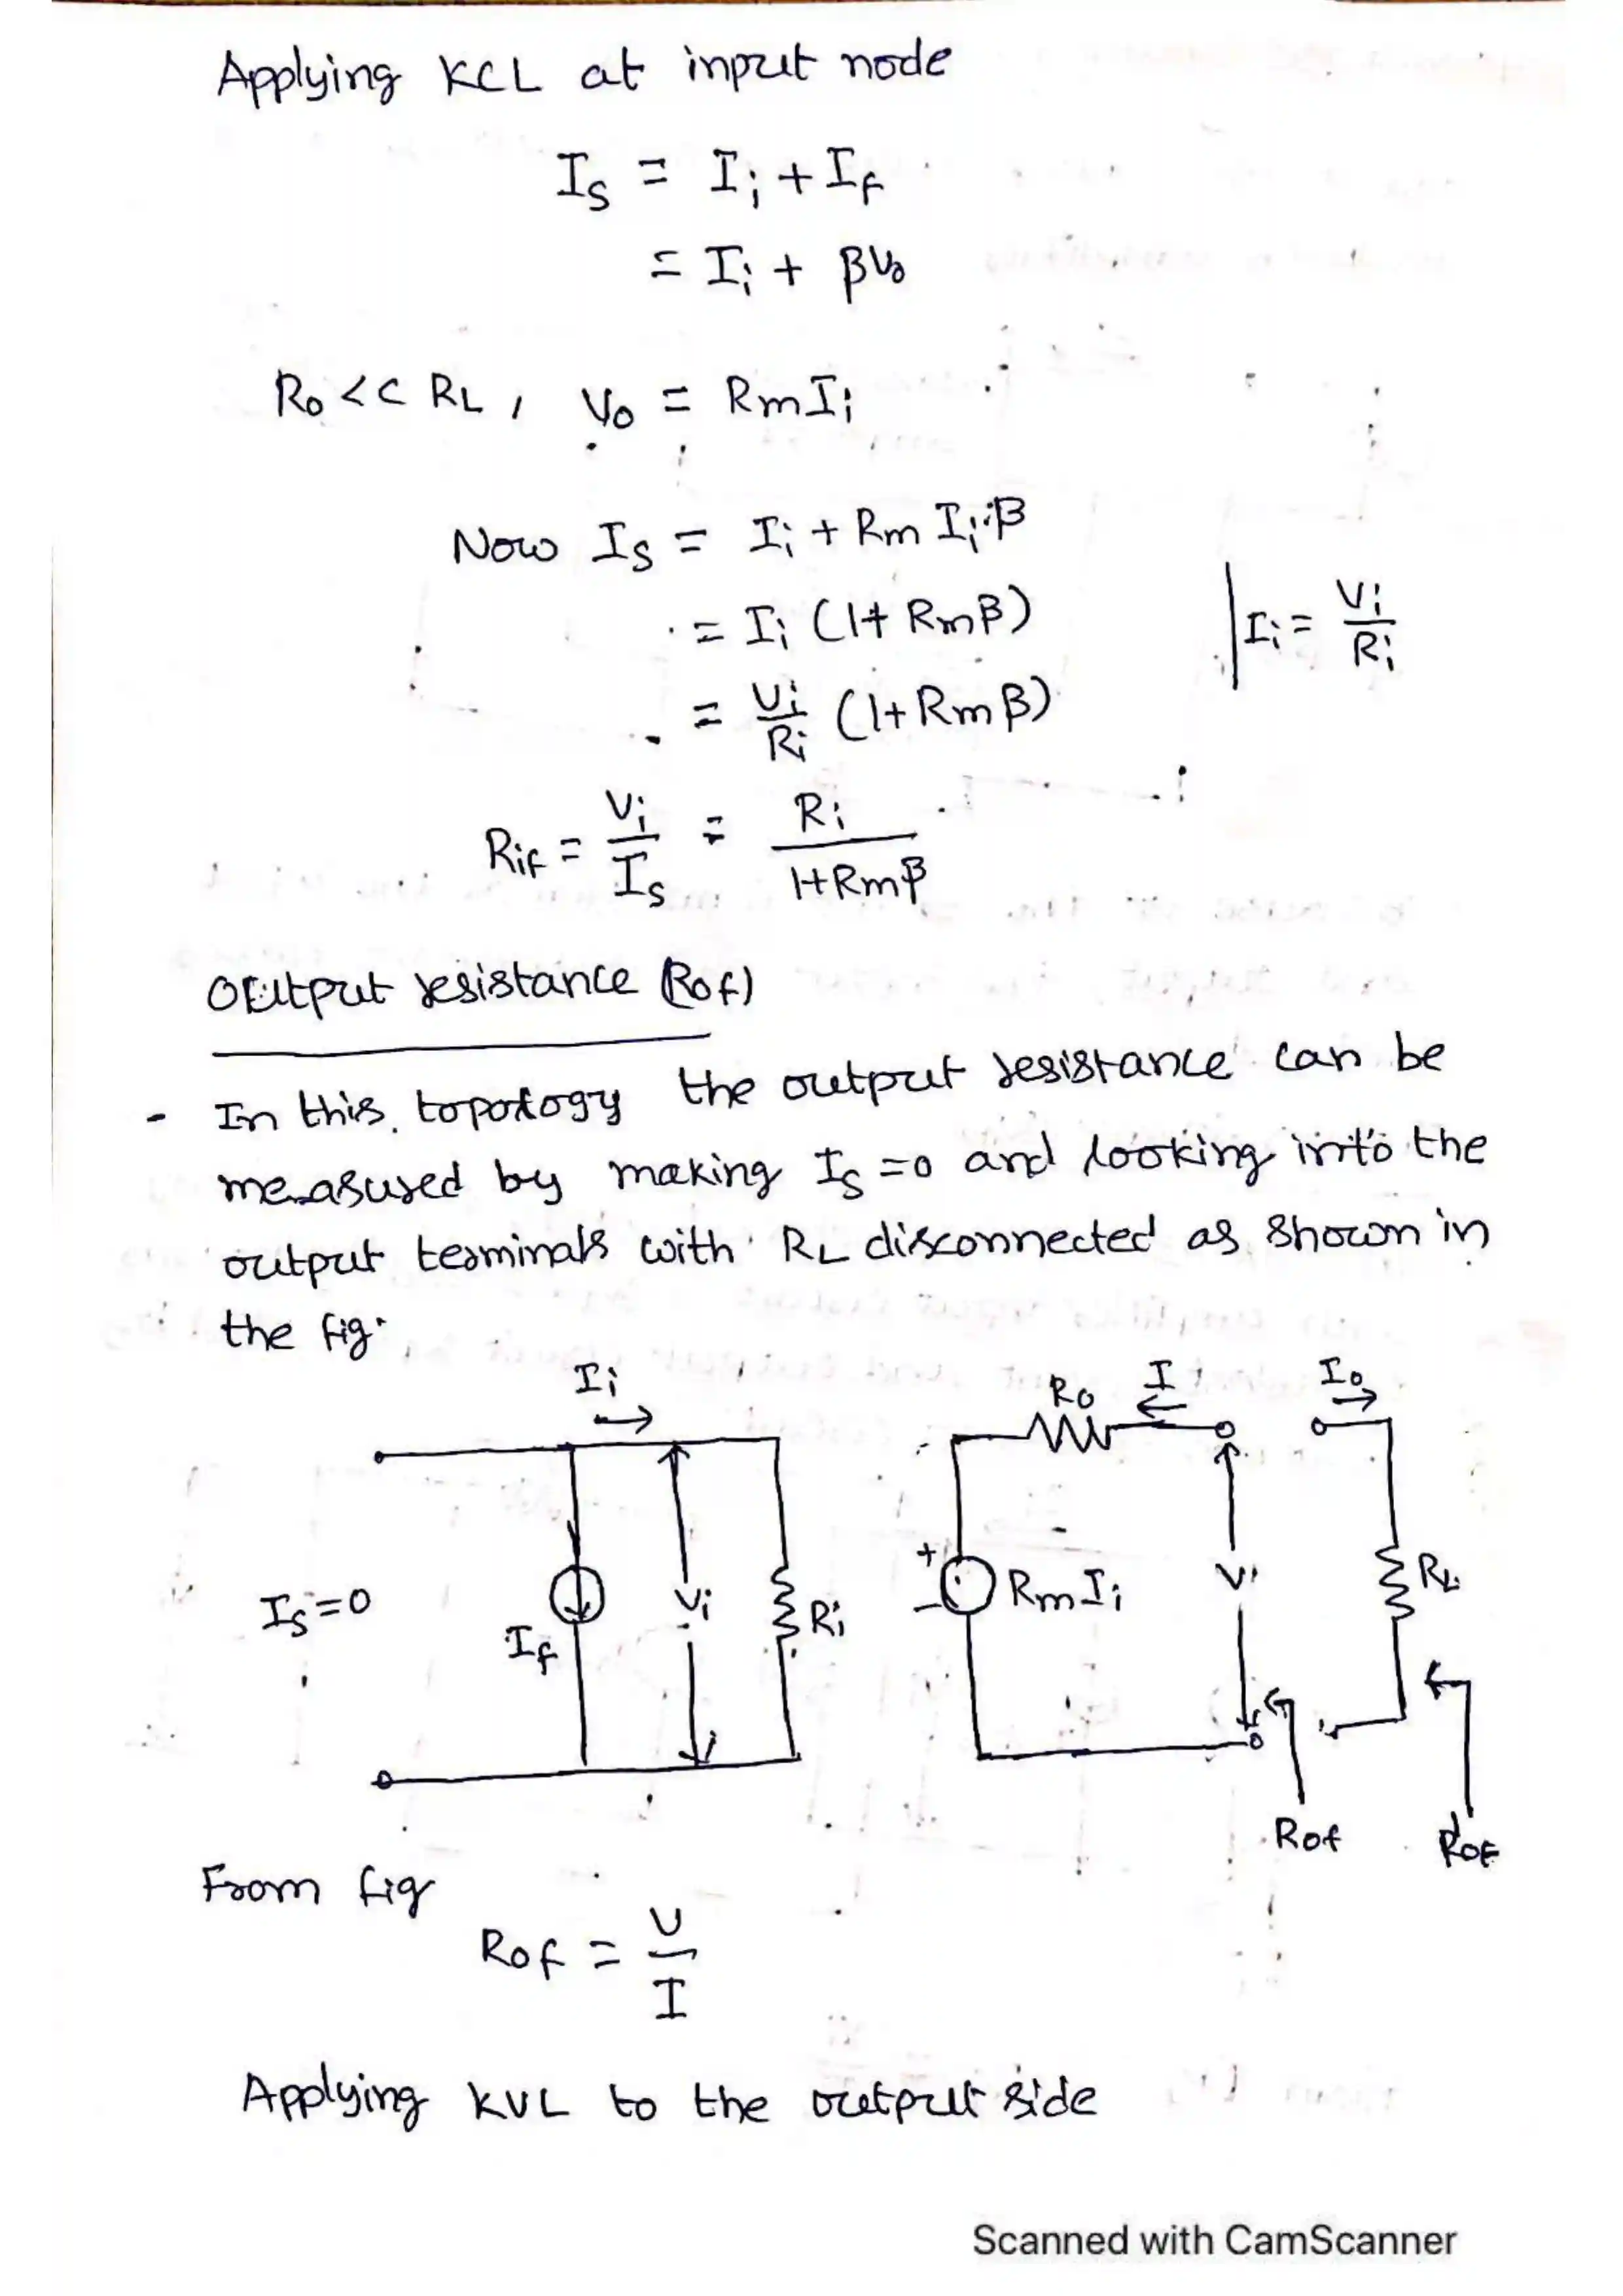 Applying KCL at input node
Is = Ii + If
= Ii + βVo
Ro << RL, Vo = RmIi
Now Is = Ii + Rm Ii β
= Ii (1+ Rmβ)
Ii = Vi/Ri
= Vi/Ri (1+ Rmβ)
Rif = Vi/Is = Ri/1+Rmβ
Output resistance (Rof)
- In this topology the output resistance can be
measured by making Is = 0 and looking into the
output terminals with RL disconnected as shown in
the fig.
Ii
Ro
I
Io
Is = 0
If
Vi
Ri
+
-
RmIi
V
RL
Rof
R'of
From fig
Rof = V/I
Applying KVL to the output side
Scanned with CamScanner